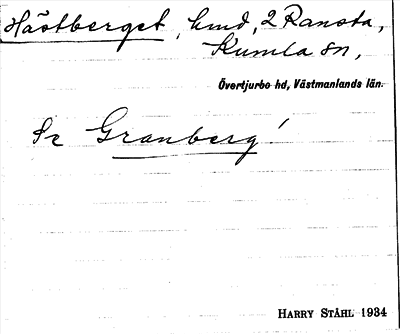 Hästberget, hmd, 2 Ransta,
Kumla sn,
Övertjurbo hd, Västmanlands län.
Se Granberg!
HARRY STÅHL 1934